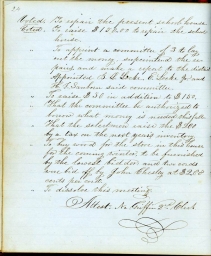 Voted: To repair the present school house.
Voted: To raise $150.00 to repair the school
house.
" To appoint a committee of 3 to lay
out the money, superintend the re-
pairs and make a report to the district
Appointed
said committee.
" To raise $50 in addition to $150.
" That the committee be authorized to
borrow what money is needed
" That the selectmen raise the $200
by a tax on the next years invoice.
" To buy wood for the stove in this house
for the coming winter, to be furnished
by the lowest bidder, and two cords
were bid off by John Chesley at $2.00
cords per cord.
" To dissolve this meeting.
Attest, N. Griffin Clerk